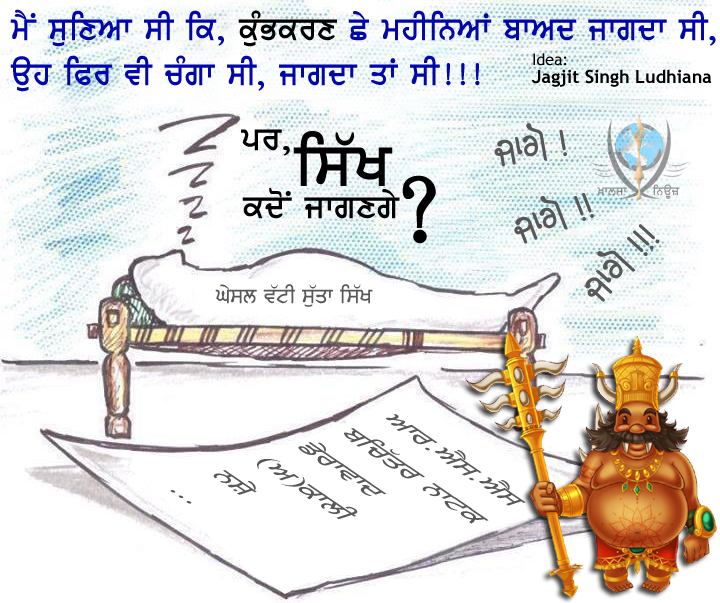 ਮੈਂ ਸੁਣਿਆ ਸੀ ਕਿ, ਕੁੰਭਕਰਣ ਛੇ ਮਹੀਨਿਆਂ ਬਾਅਦ ਜਾਗਦਾ ਸੀ,
ਉਹ ਫਿਰ ਵੀ ਚੰਗਾ ਸੀ, ਜਾਗਦਾ ਤਾਂ ਸੀ!!!
Idea:
Jagjit Singh Ludhiana
ਪਰ, ਸਿੱਖ
ਕਦੋਂ ਜਾਗਣਗੇ?
ਜਾਗੋ !
ਜਾਗੋ !!
ਜਾਗੋ !!!
ਖ਼ਾਲਸਾ ਨਿਊਜ਼
ਘੇਸਲ ਵੱਟੀ ਸੁੱਤਾ ਸਿੱਖ
ਆਰ.ਐਸ.ਐਸ
ਬਚਿੱਤਰ ਨਾਟਕ
ਡੇਰਾਵਾਦ
(ਅ)ਕਾਲੀ
ਨਸ਼ੇ
...